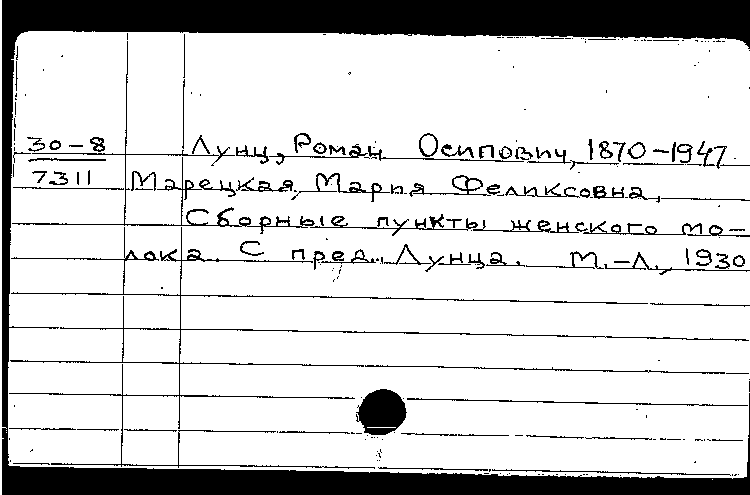 30-8
7311
Лунц, Роман Осипович, 1870-1947
Марецкая, Мария Феликсовна,
Сборные пункты женского мо-
лока. С пред. Лунца. М.-Л., 1930